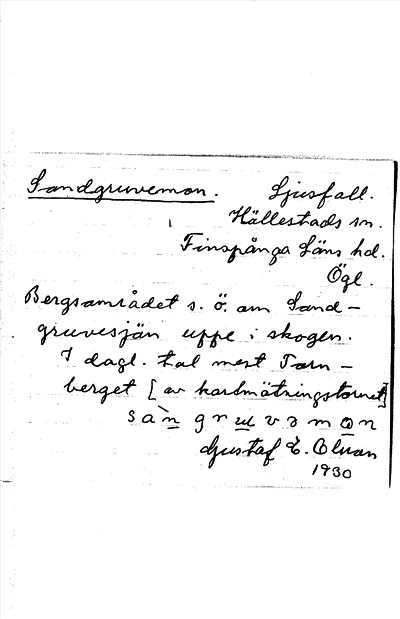 Sandgruvemon.
Ljusfall.
Hällestads sn.
Finspånga Läns hd.
Ögl.
Bergsområdet s. ö. om Sand-
gruvesjön uppe i skogen.
I dagl. tal mest Torn-
berget [av kartmätningstornet]
Gustaf E. Olsson
1930